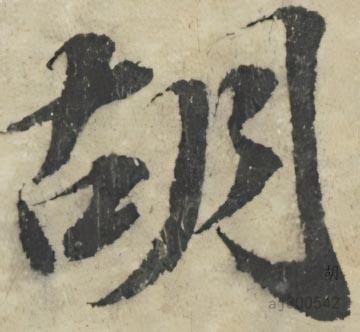 胡
胡
ag100542